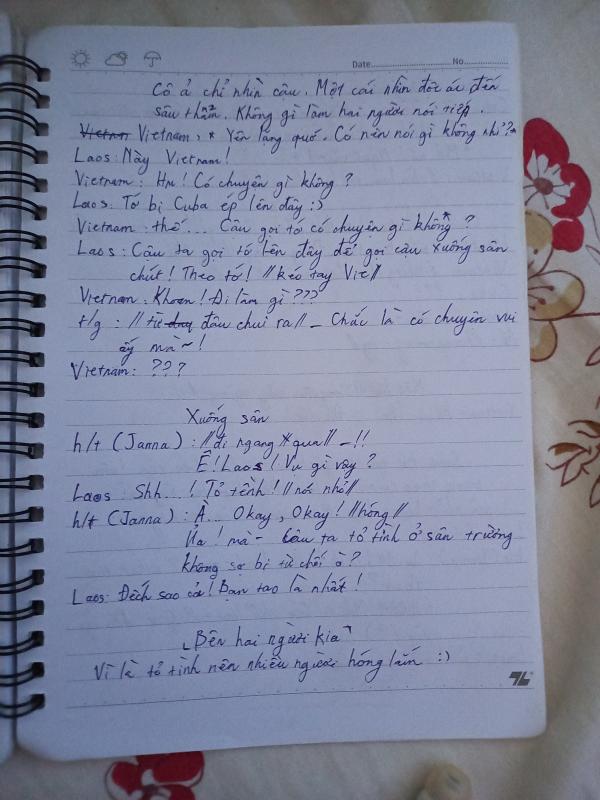 Date............ No............
Cô ả chỉ nhìn cậu. Một cái nhìn độc ác đến
sâu thẳm. Không gì làm hai người nói tiếp.
Vietnam Vietnam: * Yên lặng quá. Có nên nói gì không nhỉ? *
Laos: Này Vietnam!
Vietnam: Hm! Có chuyện gì không?
Laos: Tớ bị Cuba ép lên đây :)
Vietnam: thế... Cậu gọi tớ có chuyện gì không?
Laos: Cậu ta gọi tớ lên đây để gọi cậu xuống sân
chút! Theo tớ! //kéo tay Viet//
Vietnam: Khoan! Đi làm gì???
t/g: //từ đâu chui ra// _ Chắc là có chuyện vui
ấy mà~!
Vietnam: ???
Xuống sân
h/t (Janna): //đi ngang qua// _ !!
Ê! Laos! Vụ gì vậy?
Laos: Shh...! Tỏ tình! //nói nhỏ//
h/t (Janna): À... Okay, Okay! //hóng//
mà - Cậu ta tỏ tình ở sân trường
không sợ bị từ chối à?
Laos: Đếch sao cả! Bạn tao là nhất!
「Bên hai người kia」
Vì là tỏ tình nên nhiều người hóng lắm :)